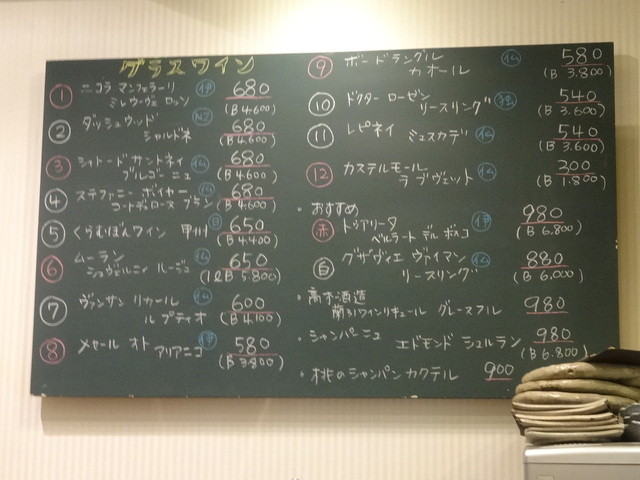 グラスワイン
① ニコラ マンフェラーリ 伊 680
ミレウーヴェ ロッソ (B 4.600)
② ダッシュウッド NZ 680
シャルドネ (B 4.600)
③ シャトードサントネイ 仏 680
ブルゴーニュ (B 4.600)
④ ステファニー ボイヤー 仏 680
コートデュローヌ ブラン (B 4.600)
⑤ くらむぼんワイン 甲州 日 650
(B 4.400)
⑥ ムーラン 仏 650
シュヴェルニィ ルージュ (1ℓB 5.800)
⑦ ヴァンサン リカール 仏 600
ル プティオ (B 4.100)
⑧ メザール オト アリアニコ 伊 580
(B 3.800)
⑨ ボードラングル 仏 580
カオール (B 3.800)
⑩ ドクター ローゼン 独 540
リースリング (B 3.600)
⑪ レピネイ ミュスカデ 仏 540
(B 3.600)
⑫ カステルモール 仏 300
ラ ブヴェット (B 1.800)
・おすすめ
赤 トゥアリータ 伊 980
ベルラート デル ボスコ (B 6.800)
白 グザヴィエ ヴァイマン 仏 880
リースリング (B 6.000)
・高木酒造
蘭引ワインリキュール グレースフル 980
・シャンパーニュ 980
エドモンド シュルラン (B 6.800)
・桃のシャンパンカクテル 900